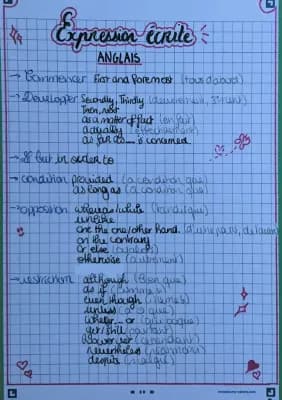 Expression écrite
ANGLAIS
→ Commencer First and Foremost (tout d'abord)
→ Developper Secondly, Thirdly (deuxièmement, 3ment)
Then, next
as a matter of fact (en fait)
actually (effectivement)
as far as ... is concerned
→ But in order to
→ condition provided (à condition que)
as long as (à condition que)
→ opposition whereas/while (tandis que)
unlike
one the one/other hand (d'une part, de l'autre)
on the contrary
or else (ou alors)
otherwise (autrement)
→ restriction although (bien que)
as if (comme si)
even though (même si)
unless (à - que)
whether ... or (que ... ou que)
yet/still (pourtant)
however yet (cependant)
nevertheless (néanmoins)
despite (malgré)